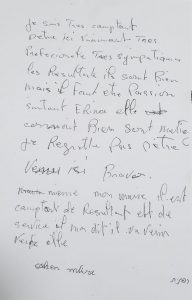 Je suis Tres comptant
Detre ici vraiment Tres
Profesionete Tres sympatique
les Resultats ils sont Bien
mais il faut etre Passion
surtout Erica elle
comment Bien sont metie
Je Regrette Pas detre
Venue ici Bravo.
meme mon mari il est
comptant de Resultat et de
service et ma dit il va venir
elle